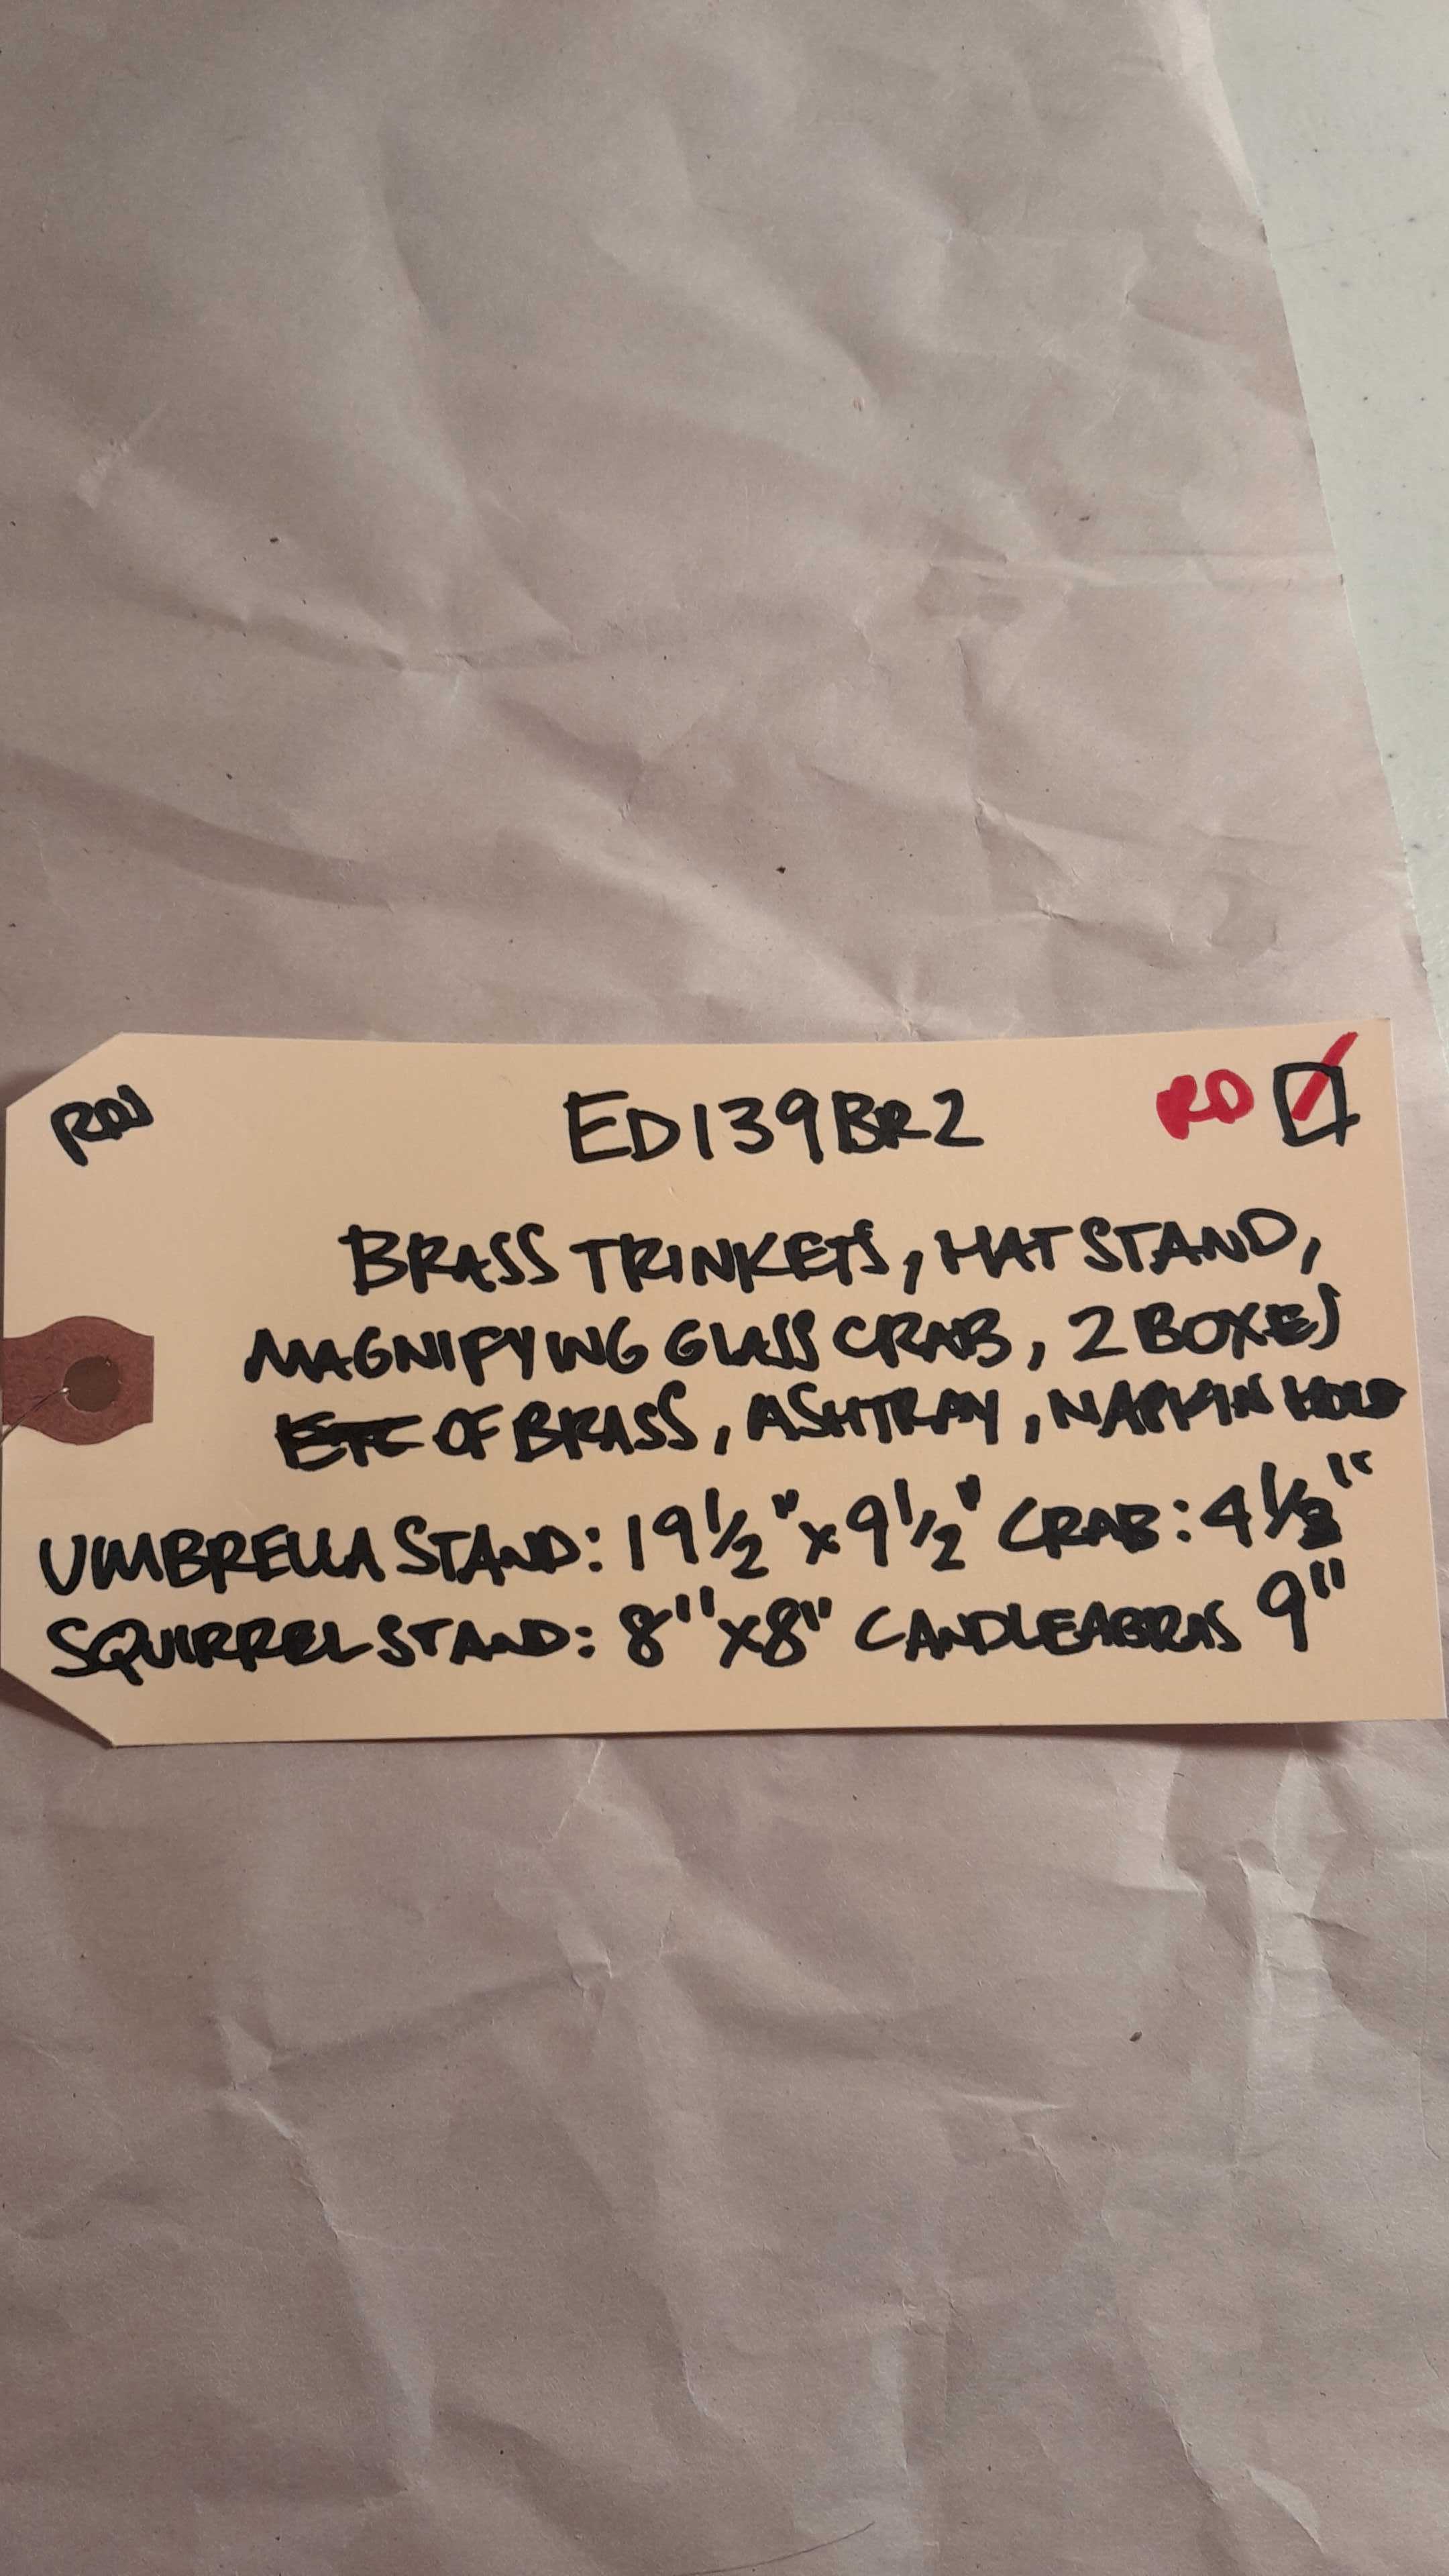 ED139BR2 RD
BRASS TRINKETS, HAT STAND,
MAGNIFYING GLASS CRAB, 2 BOXES
ETC OF BRASS, ASHTRAY, NAPKIN HOLD
UMBRELLA STAND: 19 1/2" x 9 1/2" CRAB: 4 1/2"
SQUIRREL STAND: 8" x 8" CANDLEABRAS 9"